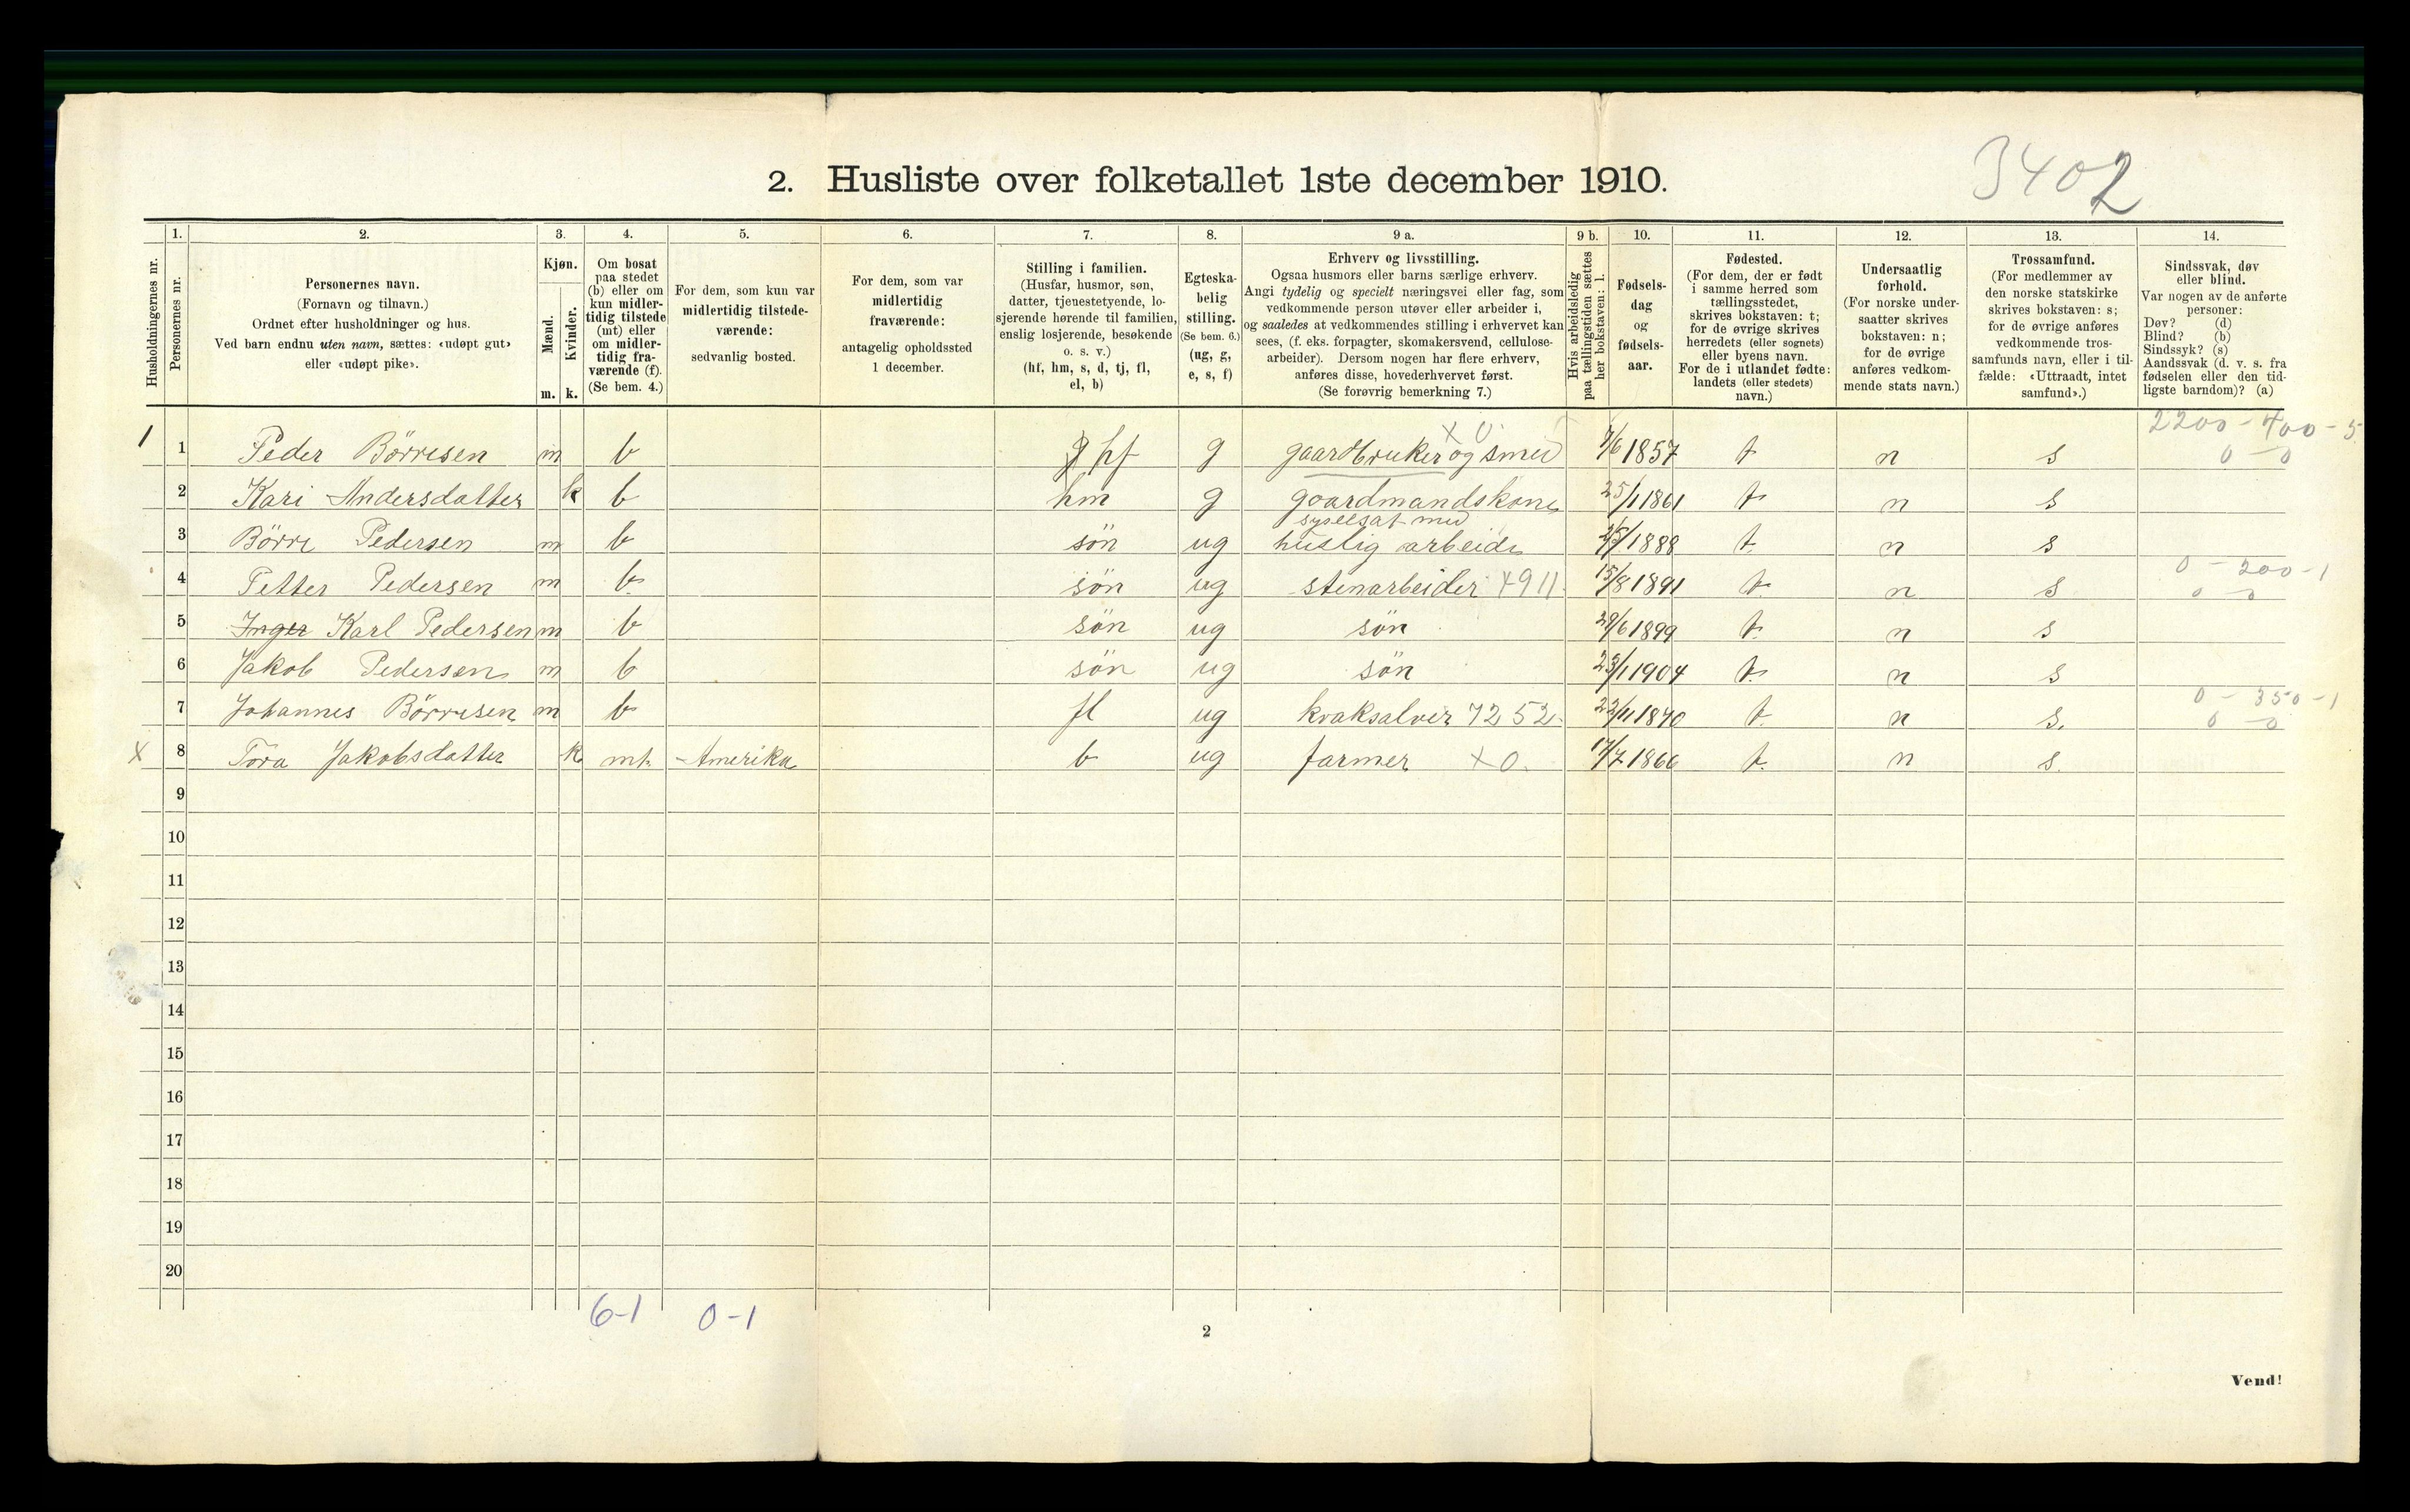 3402
2. Husliste over folketallet 1ste december 1910.
Husholdningernes nr.
1. Personernes nr.
2. Personernes navn.
(Fornavn og tilnavn.)
Ordnet efter husholdninger og hus.
Ved barn endnu uten navn, sættes: «udøpt gut»
eller «udøpt pike».
3. Kjøn.
Mænd. m.
Kvinder. k.
4. Om bosat
paa stedet
(b) eller om
kun midler-
tidig tilstede
(mt) eller
om midler-
tidig fra-
værende (f).
(Se bem. 4.)
5. For dem, som kun var
midlertidig tilstede-
værende:
sedvanlig bosted.
6. For dem, som var
midlertidig
fraværende:
antagelig opholdssted
1 december.
7. Stilling i familien.
(Husfar, husmor, søn,
datter, tjenestetyende, lo-
sjerende hørende til familien,
enslig losjerende, besøkende
o. s. v.)
(hf, hm, s, d, tj, fl,
el, b)
8. Egteska-
belig
stilling.
(Se bem. 6.)
(ug, g,
e, s, f)
9 a. Erhverv og livsstilling.
Ogsaa husmors eller barns særlige erhverv.
Angi tydelig og specielt næringsvei eller fag, som
vedkommende person utøver eller arbeider i,
og saaledes at vedkommendes stilling i erhvervet kan
sees, (f. eks. forpagter, skomakersvend, cellulose-
arbeider). Dersom nogen har flere erhverv,
anføres disse, hovederhvervet først.
(Se forøvrig bemerkning 7.)
9 b. Hvis arbeidsledig
paa tællingstiden sættes
her bokstaven: l.
10. Fødsels-
dag
og
fødsels-
aar.
11. Fødested.
(For dem, der er født
i samme herred som
tællingsstedet,
skrives bokstaven: t;
for de øvrige skrives
herredets (eller sognets)
eller byens navn.
For de i utlandet fødte:
landets (eller stedets)
navn.)
12. Undersaatlig
forhold.
(For norske under-
saatter skrives
bokstaven: n;
for de øvrige
anføres vedkom-
mende stats navn.)
13. Trossamfund.
(For medlemmer av
den norske statskirke
skrives bokstaven: s;
for de øvrige anføres
vedkommende tros-
samfunds navn, eller i til-
fælde: «Uttraadt, intet
samfund».)
14. Sindssvak, døv
eller blind.
Var nogen av de anførte
personer:
Døv? (d)
Blind? (b)
Sindssyk? (s)
Aandssvak (d. v. s. fra
fødselen eller den tid-
ligste barndom)? (a)
2200 - 400 - 5
x 0
1 1 Peder Börresen m b hf g gaardbruker og smed 7/6 1857 t n s 0 - 0
2 Kari Andersdatter k b hm g gaardmandskone 25/1 1861 t n s
syselsat med
3 Börre Pedersen m b sön ug huslig arbeide 1888 t n s
0 - 200 - 1
4 Petter Pedersen m b sön ug stenarbeider 4911 15/8 1891 t n s 0 - 0
5 Inger Karl Pedersen m b sön ug sön 29/6 1899 t n s
6 Jakob Pedersen m b sön ug sön 25/1 1904 t n s
0 - 350 - 1
7 Johannes Börresen m b fl ug kvaksalver 7252 22/11 1870 t n s. 0 - 0
x 8 Tora Jakobsdatter k mt Amerika b ug farmer x 0. 17/7 1866 t n s.
9
10
11
12
13
14
15
16
17
18
19
20
6-1 0-1
2
Vend!